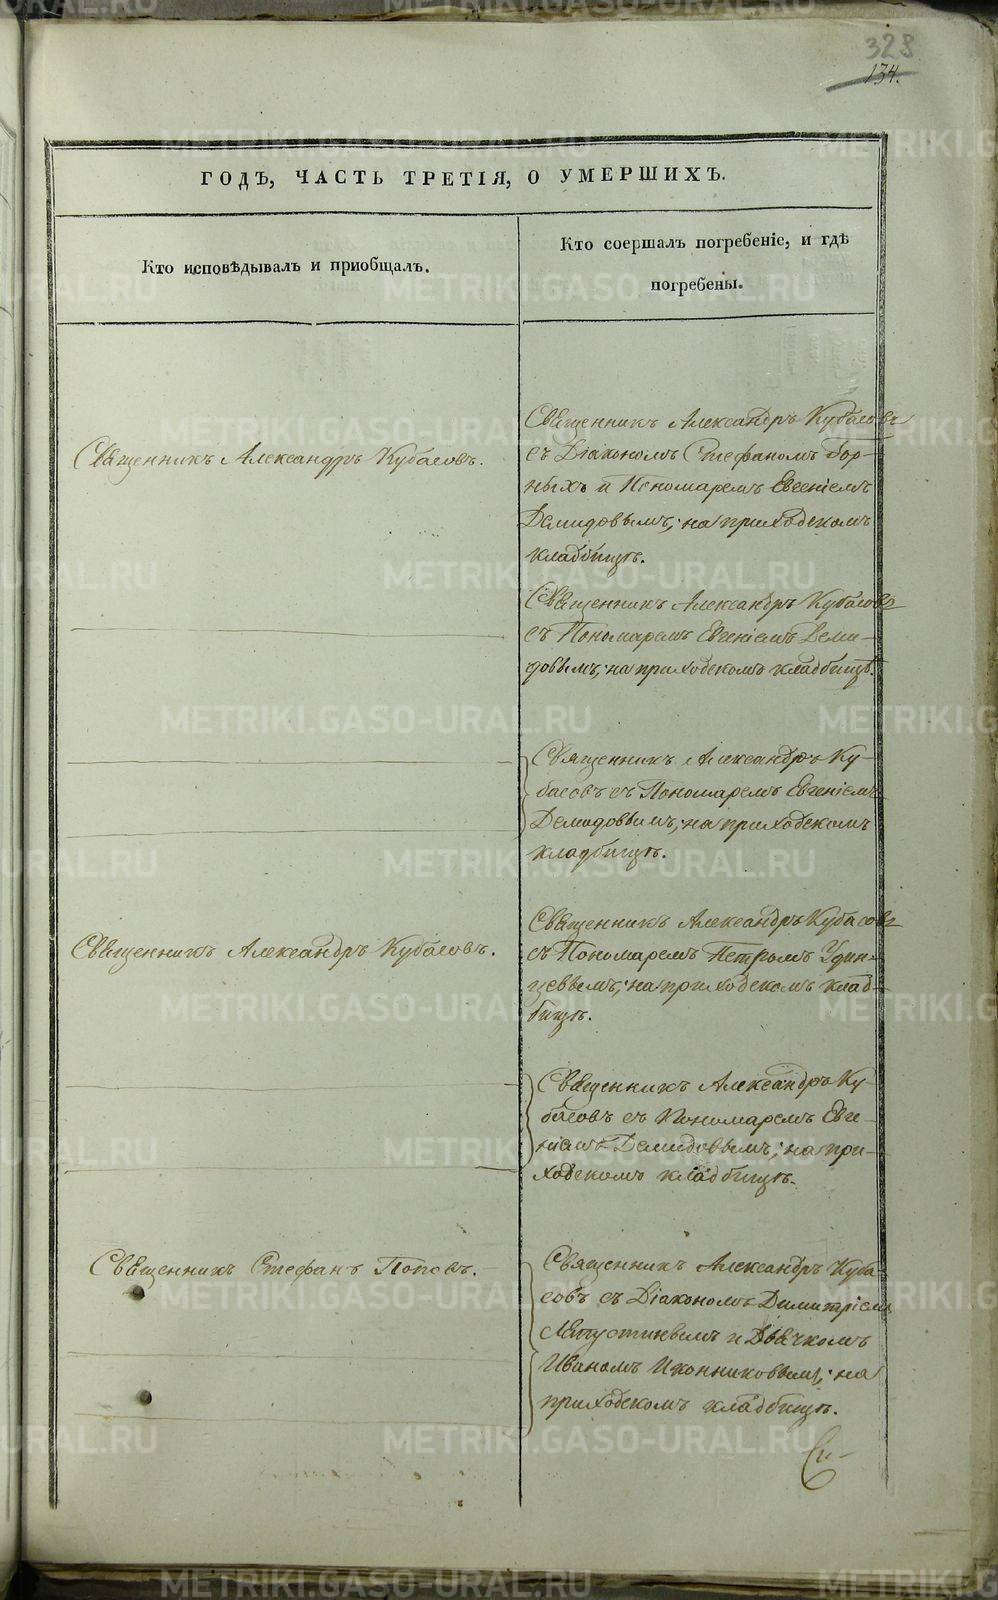 328
134.
ГОДЪ, ЧАСТЬ ТРЕТІЯ, О УМЕРШИХЪ.
Кто исповѣдывалъ и пріобщалъ.
Кто соершалъ погребеніе, и гдѣ
погребены.
Священникъ Александръ Кубасовъ.
Священникъ Александръ Кубасовъ
съ Діакономъ Стефаномъ
и Пономаремъ Евгеніемъ
Демидовымъ, на приходскомъ
кладбищѣ.
Священникъ Александръ Кубасовъ
съ Пономаремъ Евгеніемъ Деми-
довымъ, на приходскомъ кладбищѣ.
Священникъ Александръ Ку-
басовъ съ Пономаремъ Евгеніемъ
Демидовымъ, на приходскомъ
кладбищѣ.
Священникъ Александръ Кубасовъ.
Священникъ Александръ Кубасовъ
съ Пономаремъ Петромъ Удин-
цевымъ, на приходскомъ клад-
бищѣ.
Священникъ Александръ Ку-
басовъ съ Пономаремъ Евге-
ніемъ Демидовымъ, на при-
ходскомъ кладбищѣ.
Священникъ Стефанъ Поповъ.
Священникъ Александръ Куба-
совъ съ Діакономъ Димитріемъ
и Дьячкомъ
Иваномъ Иконниковымъ, на
приходскомъ кладбищѣ.
METRIKI.GASO-URAL.RU